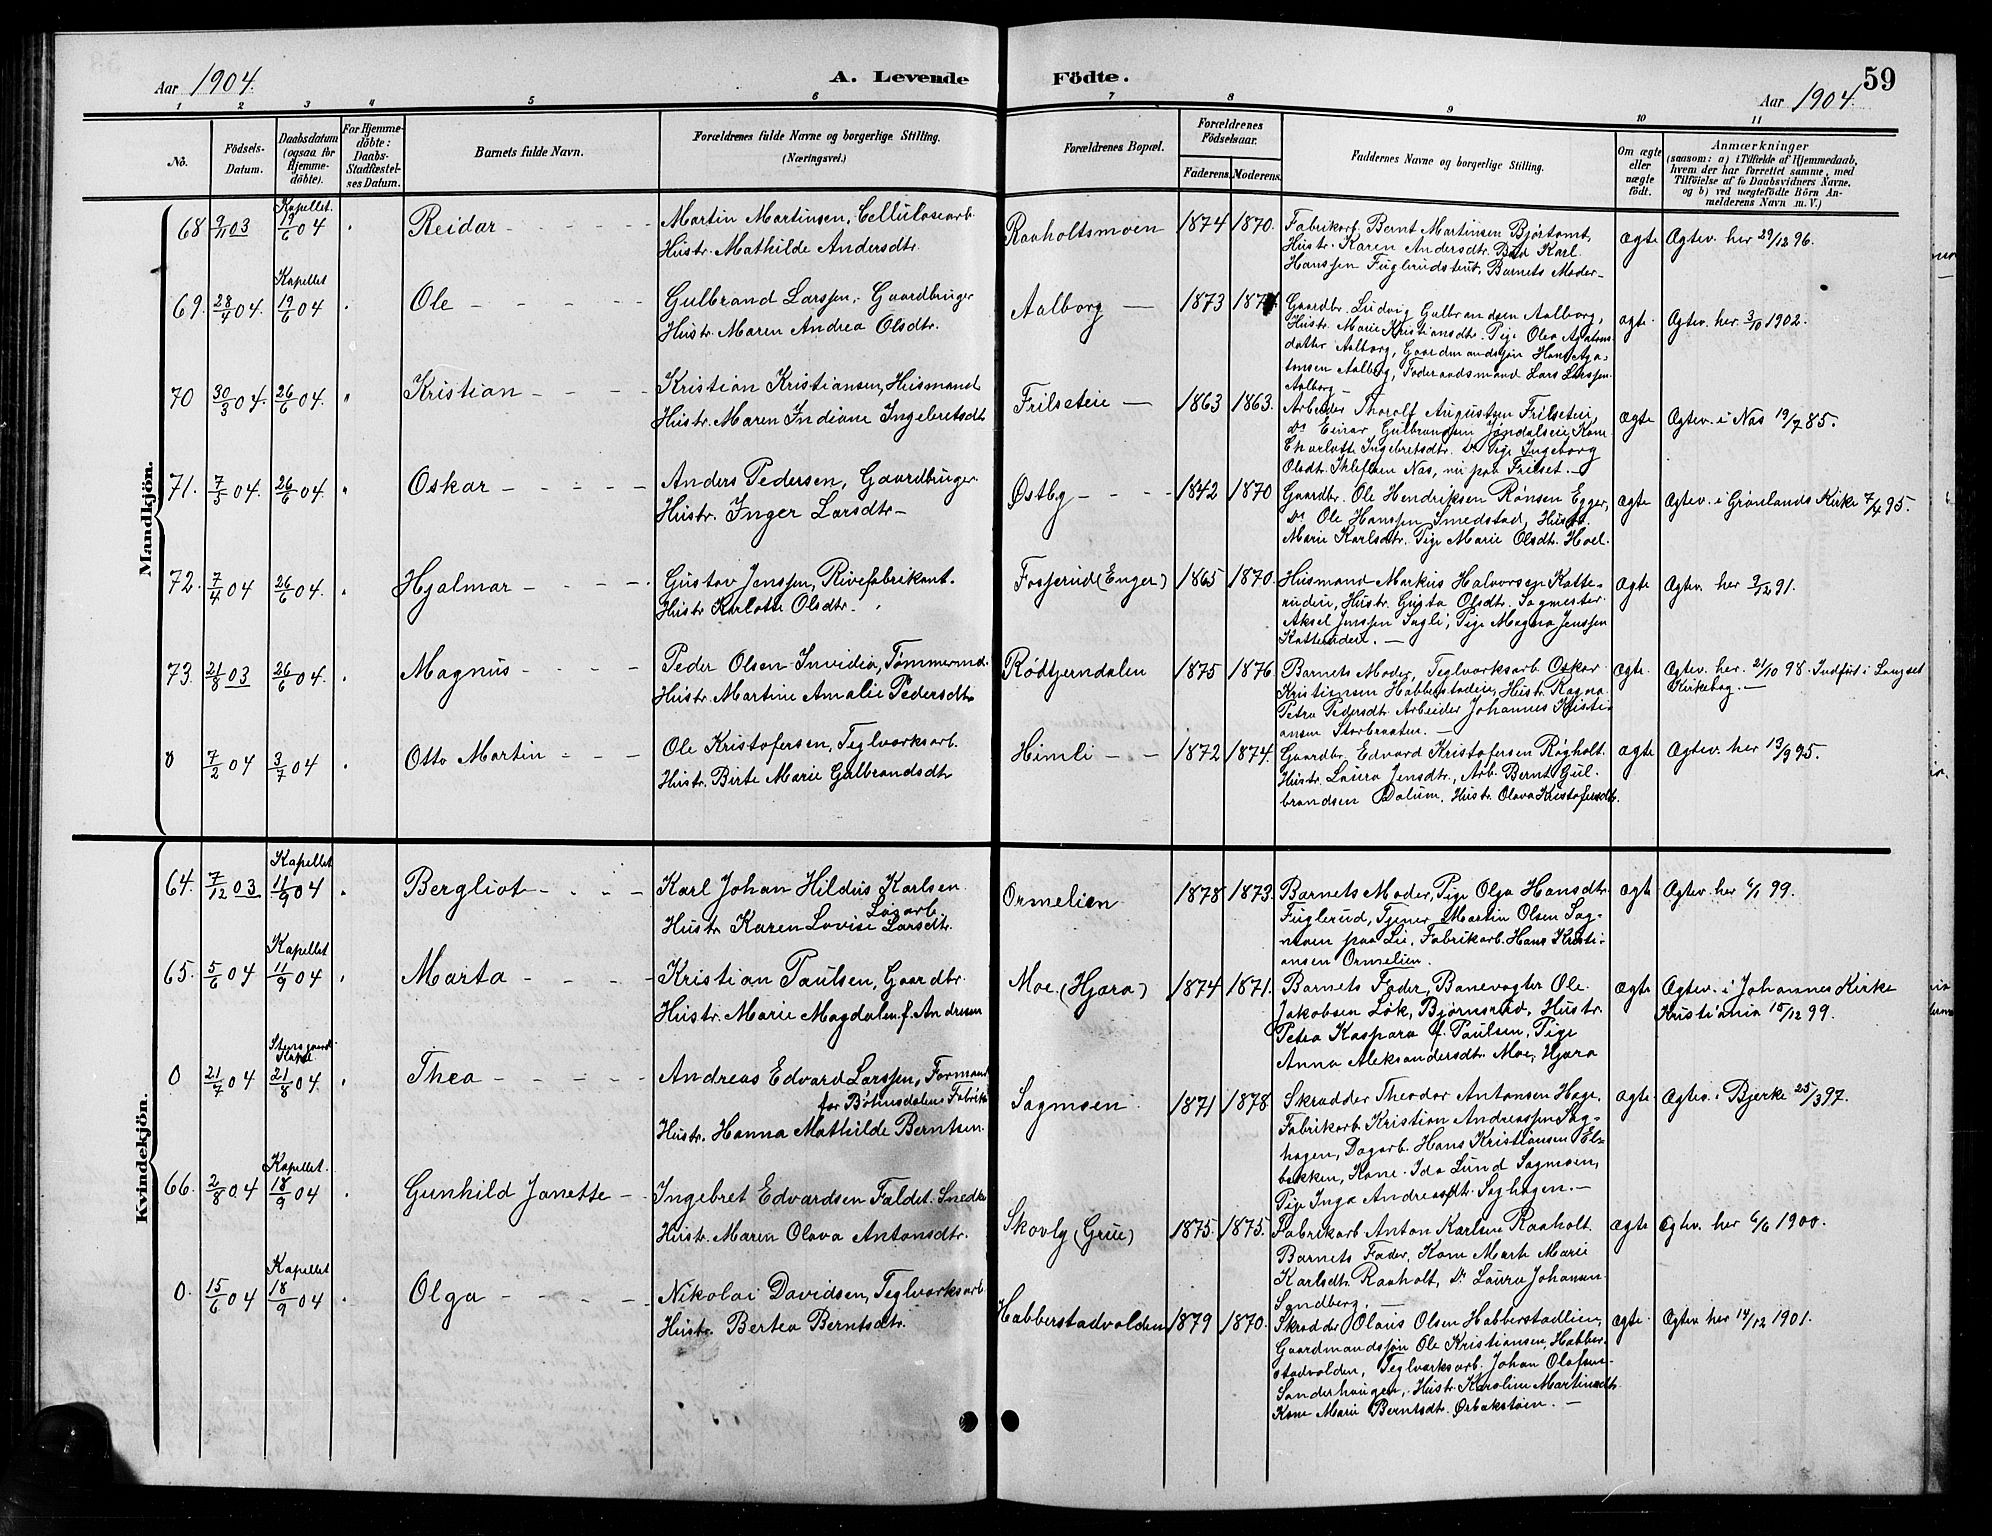 Aar 1904.
A. Levende Födte.
59
Aar 1904.
1 2 3 4 5 6 7 8 9 10 11
No.
Födsels-Datum.
Daabsdatum (ogsaa for Hjemme-döbte).
For Hjemme-döbte: Daabs-Stadfæstel-ses Datum.
Barnets fulde Navn.
Forældrenes fulde Navne og borgerlige Stilling. (Næringsvei.)
Forældrenes Bopæl.
Forældrenes Födselsaar.
Faderens. Moderens.
Faddernes Navne og borgerlige Stilling.
Om ægte eller uægte födt.
Anmærkninger
(saasom: a) i Tilfælde af Hjemmedaab,
hvem der har forrettet samme, med
Tilföielse af to Daabsvidners Navne,
og b) ved uægtefödte Börn An-
melderens Navn m. V.)
Mandkjön.
68 9/11 03 Kapellet 19/6 04 Reidar
Martin Martinsen, Cellulosearb.
Hustr. Mathilde Andersdtr.
Raaholtsmoen 1874 1870.
Fabrikarb. Bernt Martinsen Bjørtomt,
Hustr. Karen Andersdtr. Karl
Hanssen Fuglerudsteut, Barnets Moder
Ægte Ægtev. her 29/12 96.
69. 28/4 04. Kapellet 19/6 04 Ole
Gulbrand Larssen, Gaardbruger
Hustr. Maren Andrea Olsdtr.
Aalborg 1873
Gaardbr. Ludvig Gulbrandsen Aalborg,
Hustr. Marie Kristiansdtr. Pige Olea Agatons
datter Aalborg, Gaardmandssøn Hans Aga-
tonsen Aalborg, Føderaadsmand Lars Larssen
Aalborg
ægte Ægtev. her 3/10 1902.
70 30/3 04. 26/6 04. Kristian
Kristian Kristiansen, Husmand
Hustr. Maren Indiane Ingebretsdtr.
Frilseteie 1863 1863.
Arbeider Thorolf Augustsen Frilseteie,
Do Einar Gulbrandsen Kone
Charlotte Ingebretsdtr. Do Pige Ingeborg
Olsdtr. Nes, nu paa Frilset.
ægte Ægtev. i Nes 19/7 85.
71. 7/5 04. 26/6 04. Oskar
Anders Pedersen, Gaardbruger
Hustr. Inger Larsdtr
Østby 1842 1870
Gaardbr. Ole Hendriksen Rønsen Egger,
Do Ole Hanssen Smedstad, Hustr.
Marie Karlsdtr. Pige Marie Olsdtr. Hoel.
ægte Ægtev. i Grønlands Kirke 7/4 95.
72. 7/4 04 26/6 04. Hjalmar
Gustav Jenssen, Rivefabrikant.
Hustr. Karlotte Olsdtr.
Fosserud (Enger) 1865 1870.
Husmand Markus Halvorsen Katte-
rudeie, Hustr. Gusta Olsdtr. Sagmester
Aksel Jenssen Sagli, Pige Magna Jenssen
Katterudeie.
ægte Ægtev. her 91.
73. 21/8 03 26/6 04. Magnus
Peder Olsen Invidia, Tømmermd.
Hustr. Martine Amalie Pedersdtr
Rødtjerndalen 1875 1876
Barnets Moder, Teglværksarb. Oskar
Kristiansen Habberstadeie, Hustr. Ragna
Petra Pedersdtr. Arbeider Johannes Kristi-
ansen Storbraaten.
ægte. Ægtev. her. 21/10 98. Indført i Langset
Kirkebog.
0 7/2 04 3/7 04 Otto Martin
Ole Kristofersen, Teglværksarb.
Hustr. Birte Marie Gulbrandsdtr
Himli 1872 1874.
Gaardbr. Edvard Kristofersen Røgholt
Hustr. Laura Jensdtr., Arb. Bernt Gul-
brandsen Dalum, Hustr. Olava Kristofersdtr.
ægte Ægtev. her 13/9 95.
Kvindekjön.
64. 7/12 03 Kapellet 11/9 04 Bergliot
Karl Johan Hildus Karlsen
Løsarb.
Hustr. Karen Lovise Larsdtr.
Ormelien 1878 1873.
Barnets Moder, Pige Olga Hansdtr
Fuglerud, Tjener Martin Olsen Sag-
moen paa Lie, Fabrikarb. Hans Kristi-
ansen Ormelien.
ægte Ægtev. her 6/1 99.
65. 5/6 04 Kapellet 11/9 04 Marta
Kristian Paulsen, Gaardbr.
Hustr. Marie Magdalen f. Andresen
Moe (Hjera) 1874 1871.
Barnets Fader, Banevogter Ole
Jakobsen Løk, Bjørnsrud, Hustr.
Petra Kaspara f. Paulsen, Pige
Anna Aleksandersdtr. Moe, Hjera
ægte Ægtev. i Johannes Kirke
Kristiania 15/12 99.
0 21/7 04 Stensgaard Kapel 21/8 04. Thea
Andreas Edvard Larssen, Formand
for Bøhnsdalens Fabrik
Hustr. Hanna Mathilde Berntsen.
Sagmoen 1871 1878
Skrædder Theodor Antonsen Hage,
Fabrikarb. Kristian Andreassen Sag-
hagen, Dagarb. Hans Kristiansen El-
bekken, Kone Ida Lund Sagmoen,
Pige Inga Andreasdtr. Saghagen.
ægte Ægtev. i Bjerke 25/3 97.
66. 2/8 04 Kapellet. 18/9 04 Gunhild Janette
Ingebret Edvardsen Faldet. Snedker
Hustr. Maren Olava Antonsdtr.
Skovly (Grue) 1875. 1875.
Fabrikarb Anton Karlsen Raaholt
Barnets Fader, Kone Marte Marie
Karlsdtr. Raaholt, Do Laura Johansen
Sandberg.
ægte Ægtev. her 6/6 1900.
0. 15/6 04 Kapellet 18/9 04 Olga
Nikolai Davidsen, Teglværksarb.
Hustr. Bertea Berntsdtr.
Habberstadvolden 1879 1870.
Skrædder Olaus Olsen Habberstadlien,
Gaardmandssøn Ole Kristiansen, Habber-
stadvolden, Teglværksarb. Johan Olafsen
Sanderhaugen, Hustr. Karoline Martinsdtr.
Kone Marie Berntsdtr. Ørbækstøen.
ægte. Ægtev her 14/12 1901.